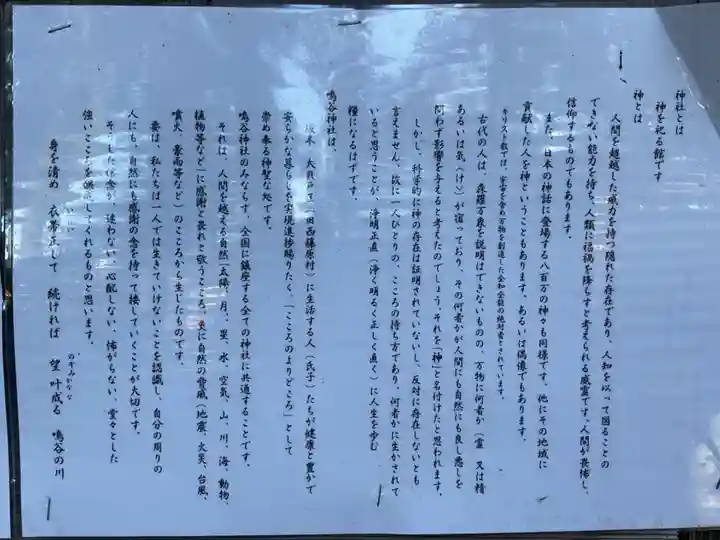 神社とは
神を祀る館です
神とは
人間を超越した威力を持つ隠れた存在であり、人知を以って図ることの
できない能力を持ち、人類に禍福を降らすと考えられる威霊です。人間が畏怖し、
信仰するものでもあります。
また、日本の神話に登場する八百万の神々も同様です。他にその地域に
貢献した人を神ということもあります。あるいは偶像でもあります。
キリスト教では、宇宙を含め万物を創造した全知全能の絶対者とされています。
古代の人は、森羅万象を説明はできないものの、万物に何者か（霊 又は精
あるいは気（け））が宿っており、その何者かが人間にも自然にも良し悪しを
問わず影響を与えると考えたのでしょう。それを「神」と名付けたと思われます。
しかし、科学的に神の存在は証明されていないし、反対に存在しないとも
言えません。故に一人ひとりの、こころの持ち方であり、何者かに生かされて
いると思うことが、浄明正直（浄く明るく正しく直く）に人生を歩む
糧になるはずです。
鳴谷神社は、
大貝戸 田西藤原村）に生活する人（氏子）たちが健康と豊かで
安らかな暮らしを実現進捗賜りたく、「こころのよりどころ」として
崇め奉る神聖な処です。
鳴谷神社のみならず、全国に鎮座する全ての神社に共通することです。
それは、人間を越える自然「太陽、月、星、水、空気、山、川、海、動物、
植物等など」に感謝と畏れと敬うこころ、更に自然の脅威（地震、火災、台風、
噴火、豪雨等など）のこころから生じたものです。
要は、私たちは一人では生きていけないことを認識し、自分の周りの
人にも、自然にも感謝の念を持って接していくことが大切です。
そうした信念が、迷わない、心配しない、怖がらない、堂々とした
強いこころを醸しくれるものと思います。
身を清め 衣帯正して 続ければ 望 叶成る 鳴谷の川